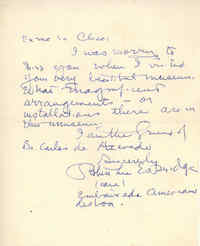 I was sorry to
miss you when I visited
your very beautiful museum.
What magnificent
arrangements - or
installations there are in
this museum.
I am the friend of
Dr Carlos de Azevedo
Sincerely
(care)
Embaixada Americana
Lisboa.